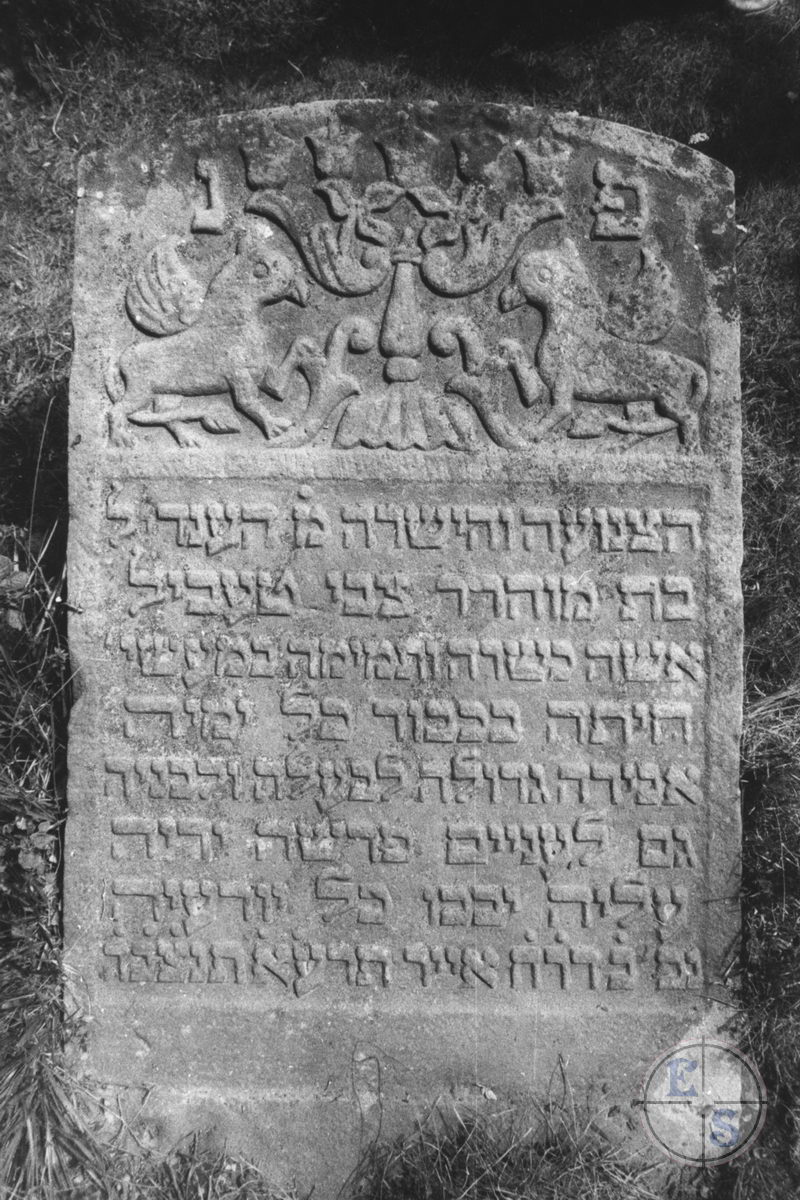 פ נ
הצנועה והישרה מ' הענדיל
בת מוהרר צבי טעביל
אשה כשרה ותמימה במעשי'
היתה בכבוד כל ימיה
אבירה גדולה לבעלה ולבניה
גם לעניים פרשה ידיה
עליה יבכו כל יודעיה
נפ' ב' דר'ח אייר תרע'א תנצב'ה
E S